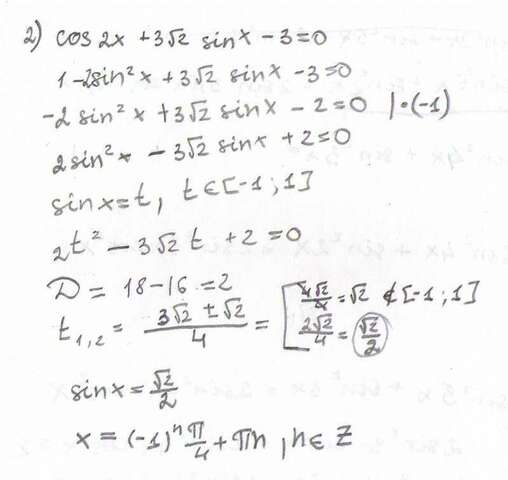 2) cos 2x + 3√2 sin x - 3 = 0
1 - 2sin² x + 3√2 sin x - 3 = 0
-2 sin² x + 3√2 sin x - 2 = 0 | · (-1)
2 sin² x - 3√2 sin x + 2 = 0
sin x = t, t ∈ [-1; 1]
2t² - 3√2 t + 2 = 0
D = 18 - 16 = 2
t₁,₂ = (3√2 ± √2)/4 = [ 4√2/4 = √2 ∉ [-1; 1]
2√2/4 = √2/2
sin x = √2/2
x = (-1)ⁿ π/4 + πn, n ∈ Z